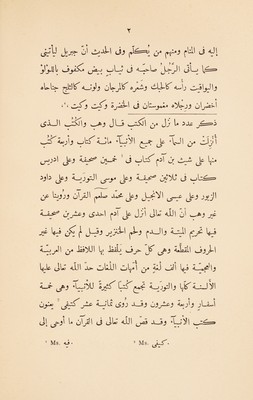 ٢
إليه فى المنام ومنهم من يُكلَّم وفى الحديث أنّ جبريل لَيأتينى
كما يأتى الرَّجُل صاحبَه فى ثياب بيض مكفوف باللؤلؤ
واليواقيت رأسه كالحبك وشعره كالمرجان ولونه كالثلج جناحاه
أخضران ورجلاه مغموستان فى الخضرة وكيت وكيت ¹،
ذكر عدد ما نزل من الكتب قال وهب والكتب الذى
أُنزلت من السمآء على جميع الأنبيآء مائة كتاب وأربعة كُتُب
منها على شيث بن آدم كتاب فى خمسين صحيفة وعلى ادريس
كتاب فى ثلاثين صحيفة وعلى موسى التورية وعلى داود
الزبور وعلى عيسى الانجيل وعلى محمّد صلعم القرآن ورُوينا عن
غير وهب أنّ الله تعالى أنزل على آدم احدى وعشرين صحيفة
فيها تحريم الميتة والدم ولحم الخنزير وقيل لم يكن فيها غير
الحروف المقطّعة وهى كلّ حرف يلفظ بها اللافظ من العربيّة
والعجميّة فيها ألف لُغةٍ من أُمّهات اللغات حدّ الله تعالى عليها
الألسنة كلّها والتورية تجمع كتبًا كثيرةً للأنبيآء وهى خمسة
أسفار وأربعة وعشرون وقد رُوى ثمانية عشر كتيفى ² يعنون
كتب الأنبيآء وقد قصّ الله تعالى فى القرآن ما أوحى إلى
¹ Ms. فيه.
² Ms. كتبفى.